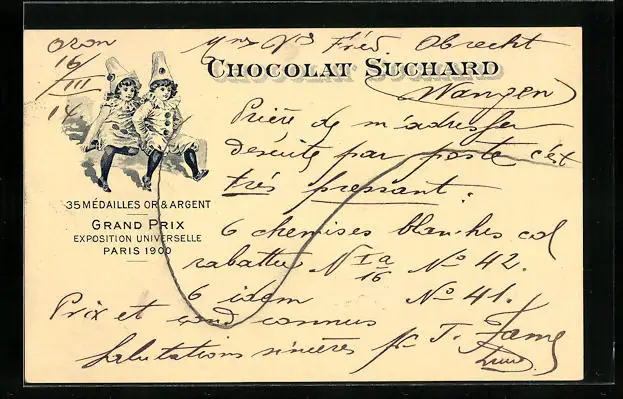 Oron
16/III
14
Mrs Vve Fréd. Obrecht
CHOCOLAT SUCHARD
Wangen
Prière de m'adresser
desuite par poste c'ést
très pressant:
6 chemises blanches col
rabattu N Ia/16 No 42.
6 idem No 41.
Prix et cond connus
Salutations sincères
35 MÉDAILLES OR & ARGENT
GRAND PRIX
EXPOSITION UNIVERSELLE
PARIS 1900